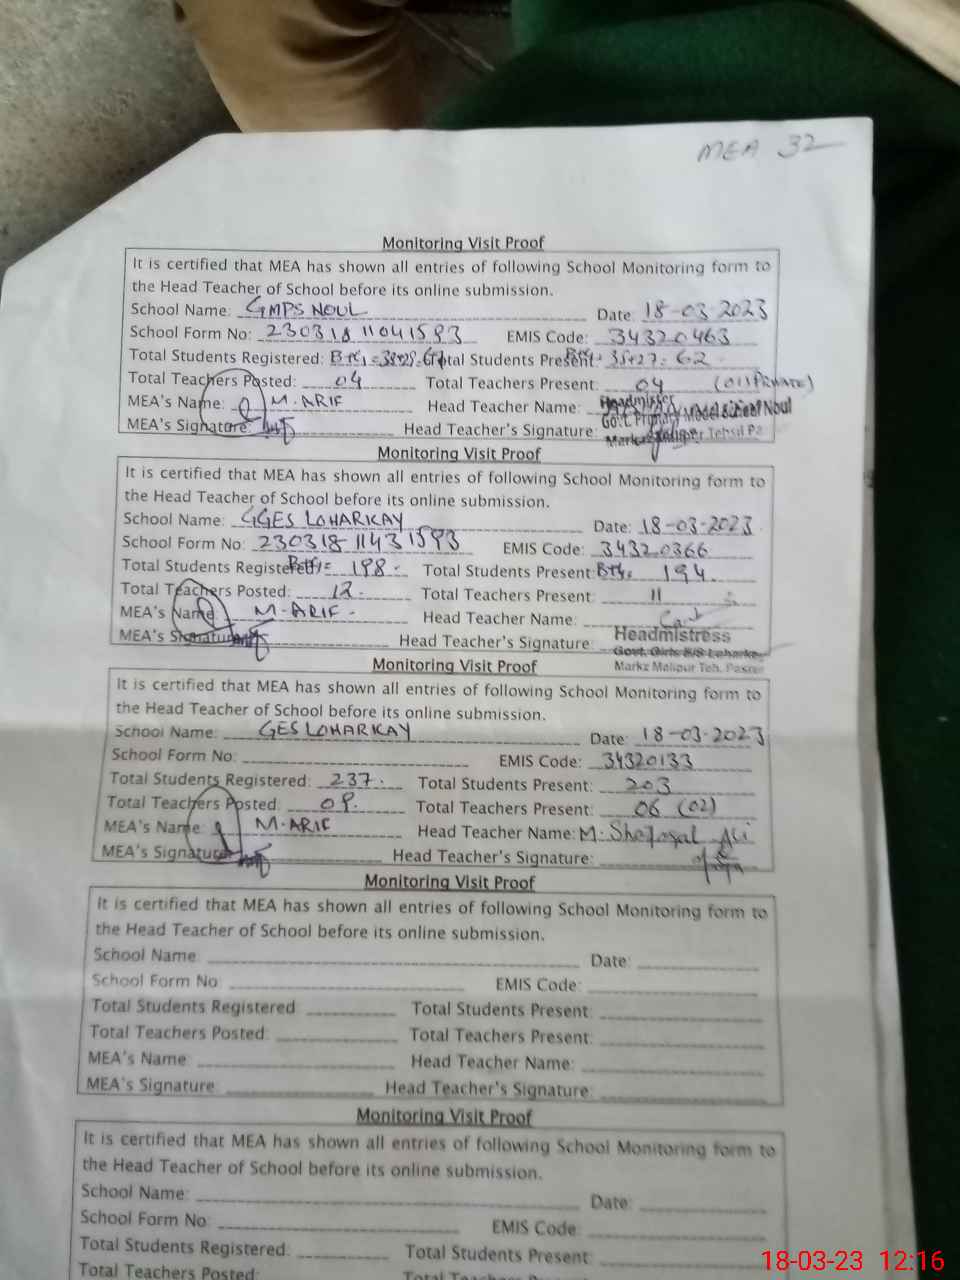 MEA 32
Monitoring Visit Proof
It is certified that MEA has shown all entries of following School Monitoring form to
the Head Teacher of School before its online submission.
School Name: GMPS NOUL Date: 18-03-2023
School Form No: 230318 11041593 EMIS Code: 34320463
Total Students Registered: Total Students Present: 35+27=62
Total Teachers Posted: 04 Total Teachers Present: 04
MEA's Name: M. ARIF Head Teacher Name: Headmistress
MEA's Signature: Head Teacher's Signature: Govt. Primary Model School Noul
Monitoring Visit Proof
It is certified that MEA has shown all entries of following School Monitoring form to
the Head Teacher of School before its online submission.
School Name: GGES LOHARKAY Date: 18-03-2023
School Form No: 230318 11431593 EMIS Code: 34320366
Total Students Registered: 198 Total Students Present: 194
Total Teachers Posted: 12 Total Teachers Present: 11
MEA's Name: M-ARIF Head Teacher Name:
MEA's Signature: Head Teacher's Signature: Headmistress
Govt. Girls E/S Loharkay
Markz Malipur Teh.
Monitoring Visit Proof
It is certified that MEA has shown all entries of following School Monitoring form to
the Head Teacher of School before its online submission.
School Name: GES LOHARKAY Date: 18-03-2023
School Form No: EMIS Code: 34320133
Total Students Registered: 237 Total Students Present: 203
Total Teachers Posted: Total Teachers Present: 06 (02)
MEA's Name: M-ARIF Head Teacher Name: M.
MEA's Signature: Head Teacher's Signature:
Monitoring Visit Proof
It is certified that MEA has shown all entries of following School Monitoring form to
the Head Teacher of School before its online submission.
School Name: Date:
School Form No: EMIS Code:
Total Students Registered: Total Students Present:
Total Teachers Posted: Total Teachers Present:
MEA's Name: Head Teacher Name:
MEA's Signature: Head Teacher's Signature:
Monitoring Visit Proof
It is certified that MEA has shown all entries of following School Monitoring form to
the Head Teacher of School before its online submission.
School Name: Date:
School Form No: EMIS Code:
Total Students Registered: Total Students Present:
Total Teachers Posted: Total Teachers Present:
18-03-23 12:16